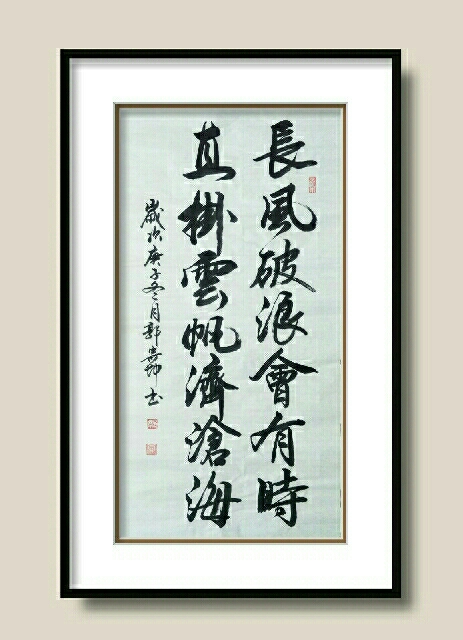 長風破浪會有時
直掛雲帆濟滄海
歲次庚子冬月郭
書